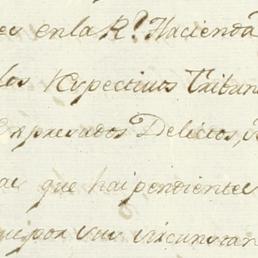 en la R.ˡ Hacienda
los respectivos Tribun
Expresados Delictos,
que hai pendientes
por sus circunstan